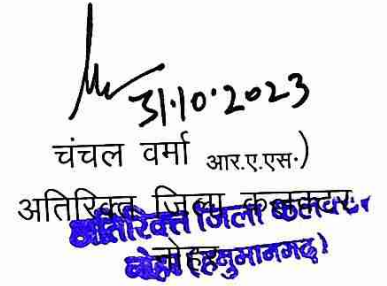 31.10.2023
चंचल वर्मा आर.ए.एस.)
अतिरिक्त जिला कलक्टर
अतिरिक्त जिला कलक्टर
नोहर
नोहर (हनुमानगढ़)